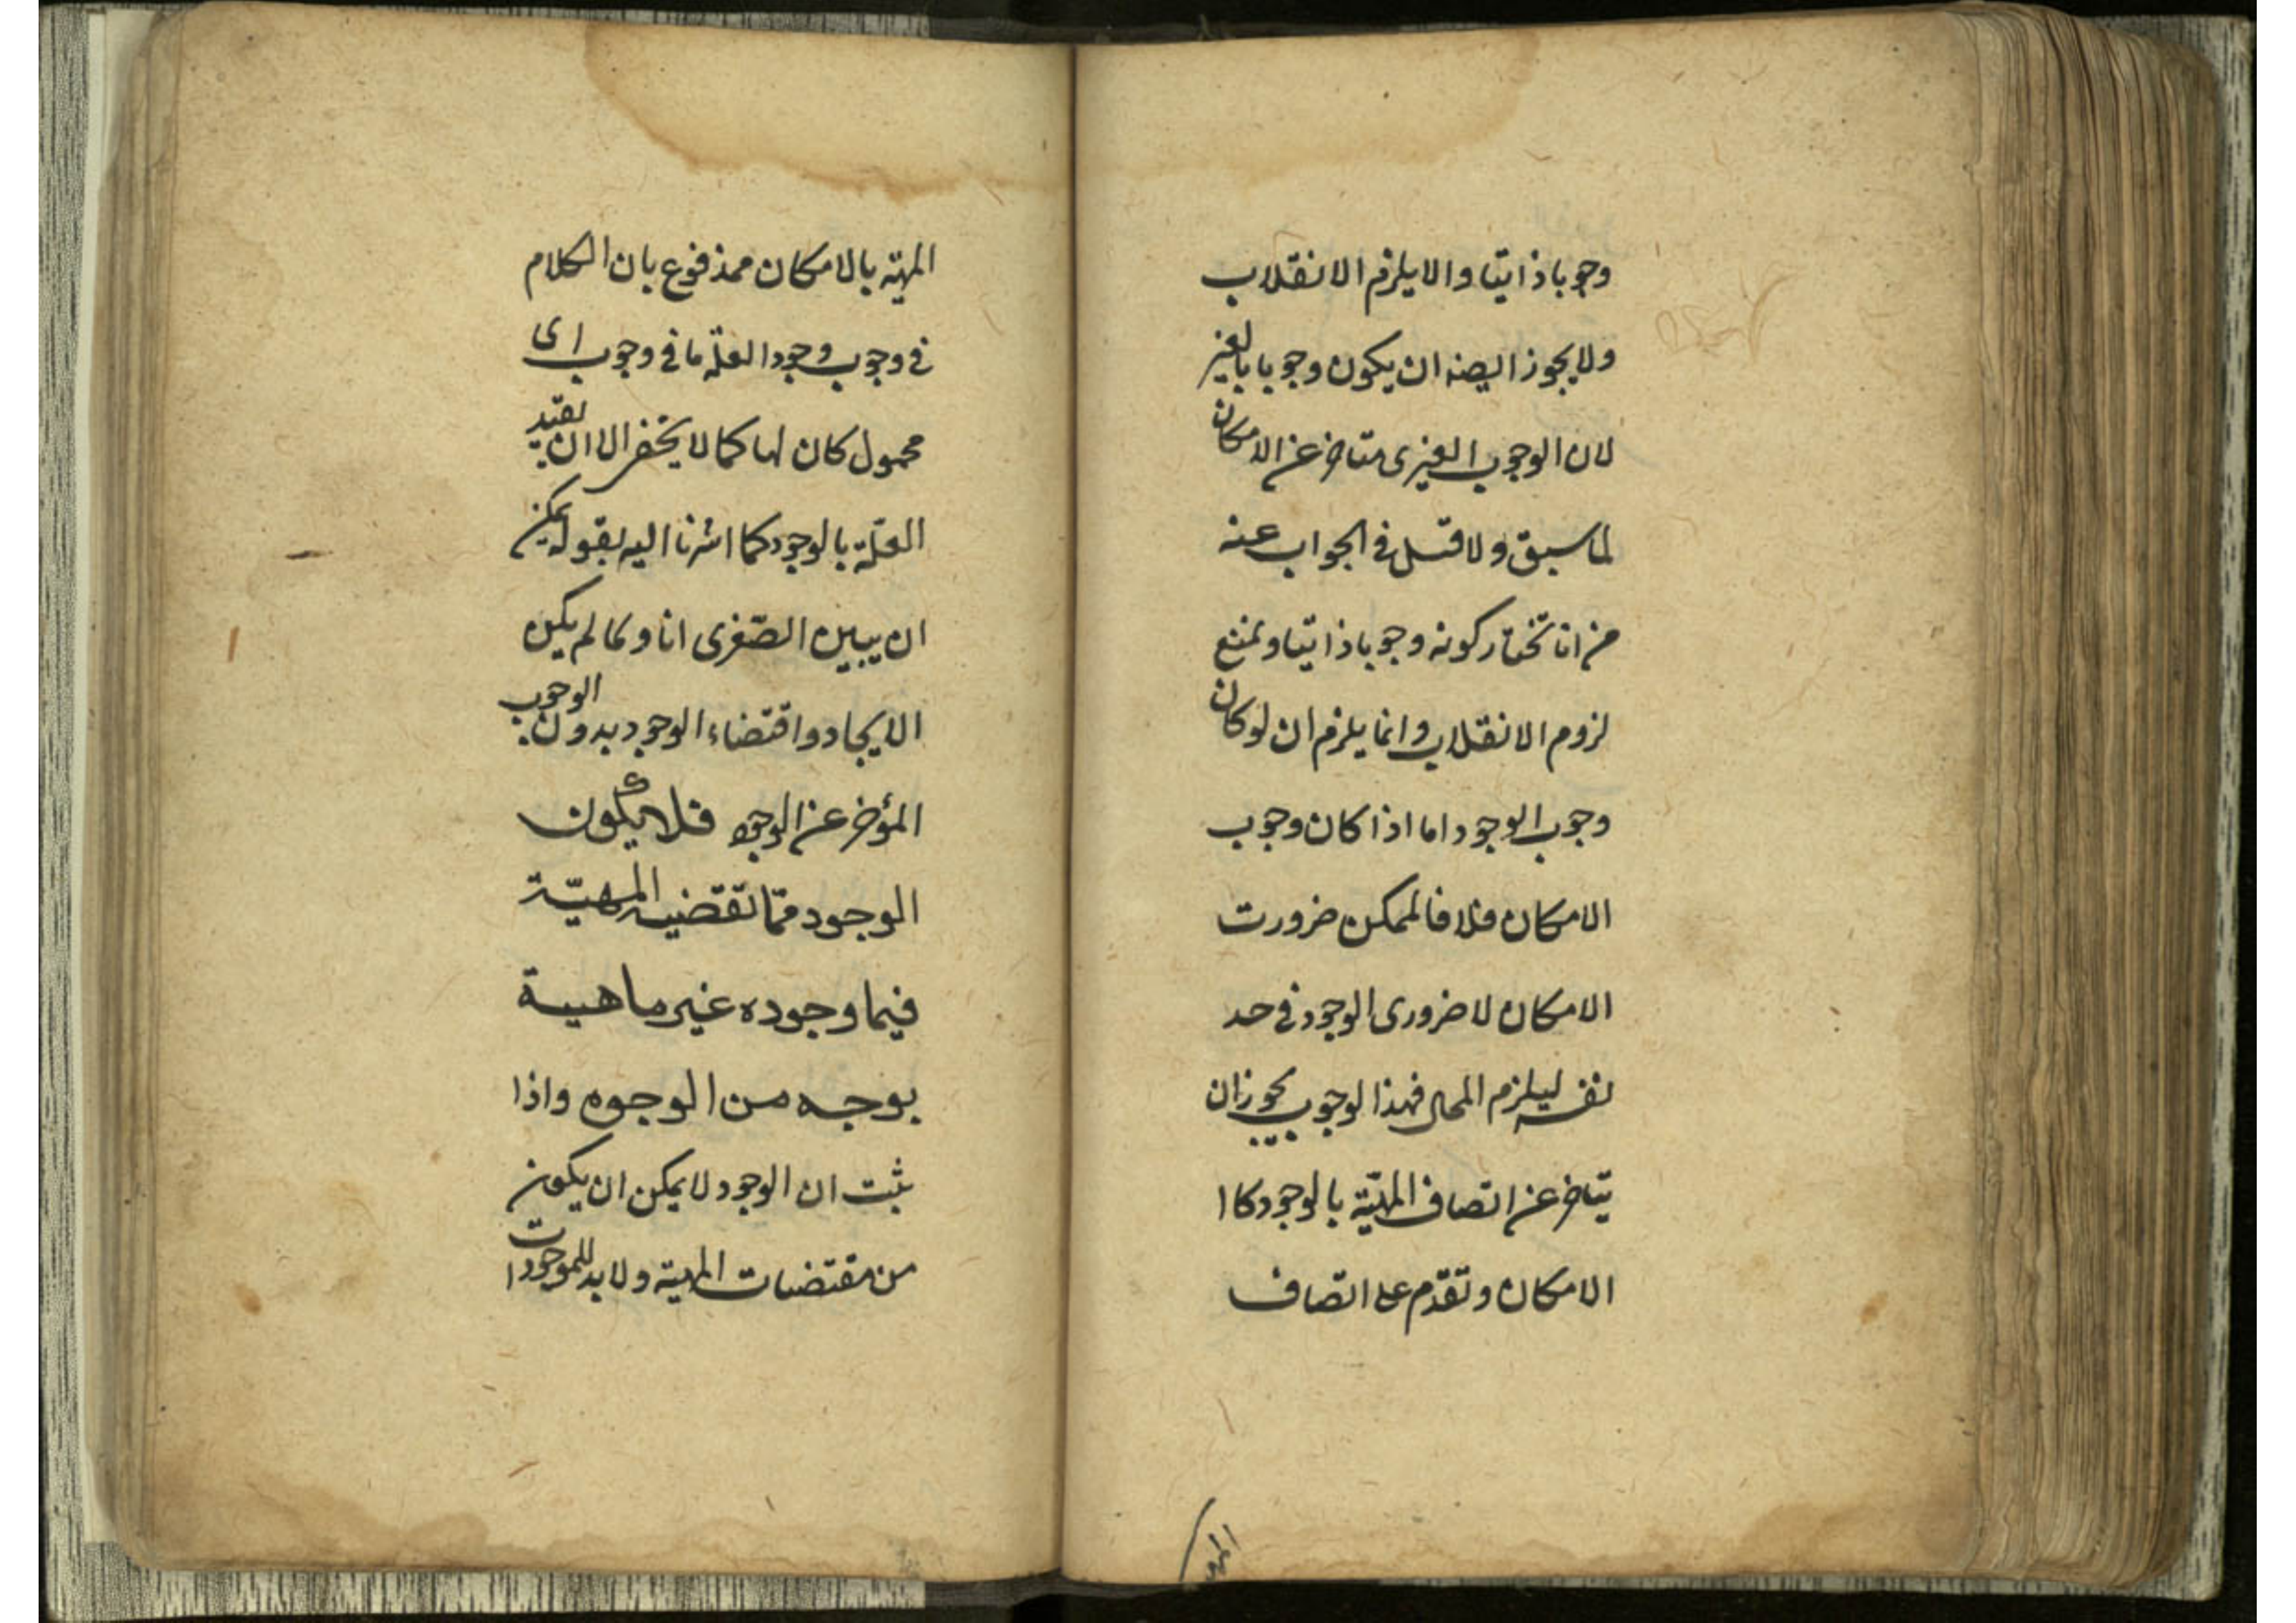 وجوبا ذاتيا والا يلزم الانقلاب
ولا يجوز ايضه ان يكون وجوبا بالغير
لان الوجوب الغيرى متاخر عن الامكان
لما سبق ولا قيل فى الجواب عنه
من انا نختار كونه وجوبا ذاتيا ونمنع
لزوم الانقلاب وانما يلزم ان لو كان
وجوب الوجود اما اذا كان وجوب
الامكان فلا فالممكن ضرورت
الامكان لا ضرورى الوجود فى حد
نفسه ليلزم المحال فهذا الوجوب يجوز ان
يتاخر عن اتصاف المهيّة بالوجود كا ا
الامكان وتقدّم على اتّصاف
المهيّة
المهيّة بالامكان ممذفوع بان الكلام
فى وجوب وجود العلّة ما فى وجوب اى
محمول كان لها كما لا يخفى الا ان يقيّد
العلّة بالوجود كما اشرنا اليه بقوله يمكن
ان يبين الصّغرى انا و لما لم يكن
الايجاد واقتضاء الوجود بدون الوجوب
المؤخر عن الوجود فلا يكون
الوجود ممّا تقتضيه المهيّة
فيما وجوده غير ماهية
بوجه من الوجوه واذا
ثبت ان الوجود لا يمكن ان يكون
من مقتضيات المهية ولا بد للموجودات